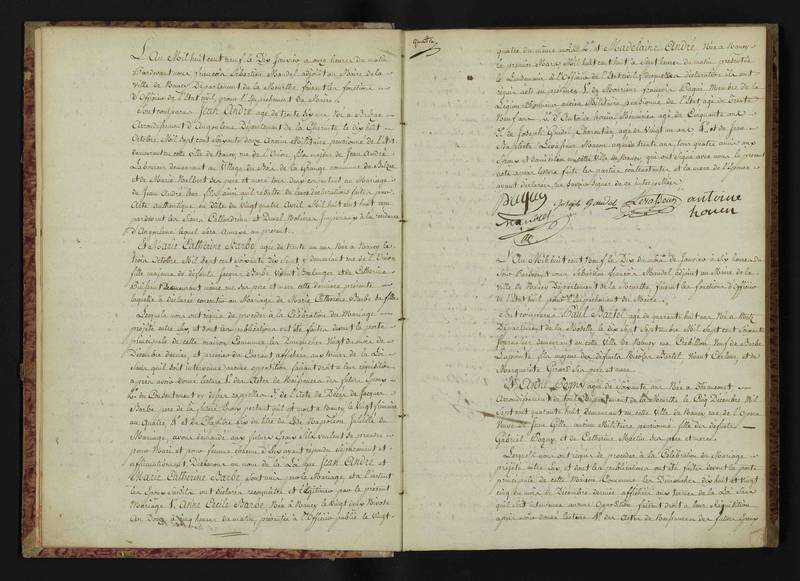 L'An Mil huit cent neuf le Dix Janvier a onze heures du matin
Pardevant nous François Sébastien Mandel adjoint au Maire de la
Ville de Nancy Département de la Meurthe, faisant les fonctions
d'Officier de l'Etat civil, pour l'Empêchement du Maire.
Sont comparus Jean André agé de trente six ans Né a
Arrondissement d'Angoulême Département de la Charente, le dix huit
Octobre Mil sept cent soixante douze Ancien Militaire, pensionné de l'Etat
demeurant en cette Ville de Nancy rue de l'Union, fils majeur de Jean André
Laboureur demeurant au Village du Bois de la Grange commune de
et de Marie ses pere et mere tous deux consentant au Mariage
de Jean André leur fils, ainsi qu'il résulte de leurs déclarations faites par
Acte authentique en date du Vingt quatre Avril Mil huit cent huit
pardevant les Sieurs et Duval Notaires Impériaux de la résidence
d'Angoulême lequel sera annexé au présent.
Et Marie Catherine Barbe agée de trente un ans Née a Nancy le
trois Octobre Mil sept cent soixante dix sept y demeurant rue de l'Union
fille majeure de défunt Jacques Barbe, vivant Boulanger et de Catherine
demeurant même rue ses pere et mere cette derniere présente
laquelle a déclaré consentir au Mariage de Marie Catherine Barbe sa fille
Lesquels nous ont requis de procéder a la Célébration du Mariage
projetté entre Eux et dont les publications ont été faites devant la porte
principale de cette maison Commune les Dimanches Vingt cinq de
Décembre dernier, et premier du Courant affichées aux termes de la Loi
Sans qu'il soit intervenu aucune opposition faisant droit a leur réquisition
après avoir donné lecture 1° des Actes de Naissances des futurs Epoux
2° du Consentement cy dessus rappellé 3° de l'Acte de Décès de Jacques
Barbe pere de la future Epouse portant qu'il est mort a Nancy le Vingt
au quatre, 4° et du Chapitre Six du titre du Code Napoléon Intitulé du
Mariage, avons demandé aux futurs Epoux s'ils veulent se prendre
pour Mari et pour femme chacun d'Eux ayant répondu séparément et
affirmativement, Déclarons au nom de la Loi que Jean André et
Marie Catherine Barbe sont unis par le Mariage, et a l'instant
les Epoux susdits ont déclaré reconnaitre et légitimer par le présent
Mariage 1° Anne Cecile Barbe Née a Nancy le Vingt deux Nivôse
An Douze a Cinq heures du matin, présentée a l'Officier public le Vingt
quatre du même mois 2° et Madelaine André Née a Nancy
le premier Mars Mil huit cent huit a sept heures du matin présentée
le Lendemain a l'Officier de l'Etat civil desquelles déclarations ils ont
requis acte en présence 1° de Monsieur François Duquey Membre de la
Légion d'honneur ancien Militaire pensionné de l'Etat agé de Trente
Neuf ans 2° d'Antoine Menuisier agé de Cinquante ans
3° de Joseph Gaudel Charcutier, agé de Vingt un ans 4° et de Jean
Baptiste Maçon agé de trente ans tous quatre amis des
Epoux et domiciliés en cette Ville de Nancy, qui ont signé avec nous le présent
acte après lecture faite les parties contractantes et la mere de l'Epouse
ayant déclaré ne savoir signer de ce interpellées
Joseph Gaudel
antoine
Mandel
L'An Mil huit cent Neuf le Dix du mois de Janvier a Six heures du
Soir Pardevant nous Sébastien François Mandel adjoint au Maire de la
Ville de Nancy Département de la Meurthe, faisant les fonctions d'Officier
de l'Etat civil pour l'Empêchement du Maire.
Sont comparus Paul Bastel agé de quarante huit ans Né a Metz
Département de la Moselle le dix sept Septembre Mil sept cent soixante
Journalier demeurant en cette Ville de Nancy rue Crébillon Veuf de Barbe
Lapointe fils majeur des défunts Nicolas Bastel Vivant et de
Marguerite Girard ses pere et mere.
Et Anne Pogny agée de Soixante ans Née a
Arrondissement de Toul Département de la Meurthe le Cinq Décembre Mil
Sept cent quarante huit demeurant en cette Ville de Nancy rue de
Veuve de Jean ancien Militaire pensionné fille des défunts
Gabriel Pogny et de Catherine Martin ses pere et mere.
Lesquels nous ont requis de procéder a la Célébration du Mariage
projetté entre Eux et dont les publications ont été faites devant la porte
principale de cette Maison Commune les Dimanches dix huit et Vingt
cinq du mois de Décembre dernier affichées aux termes de la Loi Sans
qu'il soit intervenu aucune Opposition faisant droit a leur Réquisition
après avoir donné lecture 1° des Actes de Naissances des futurs Epoux